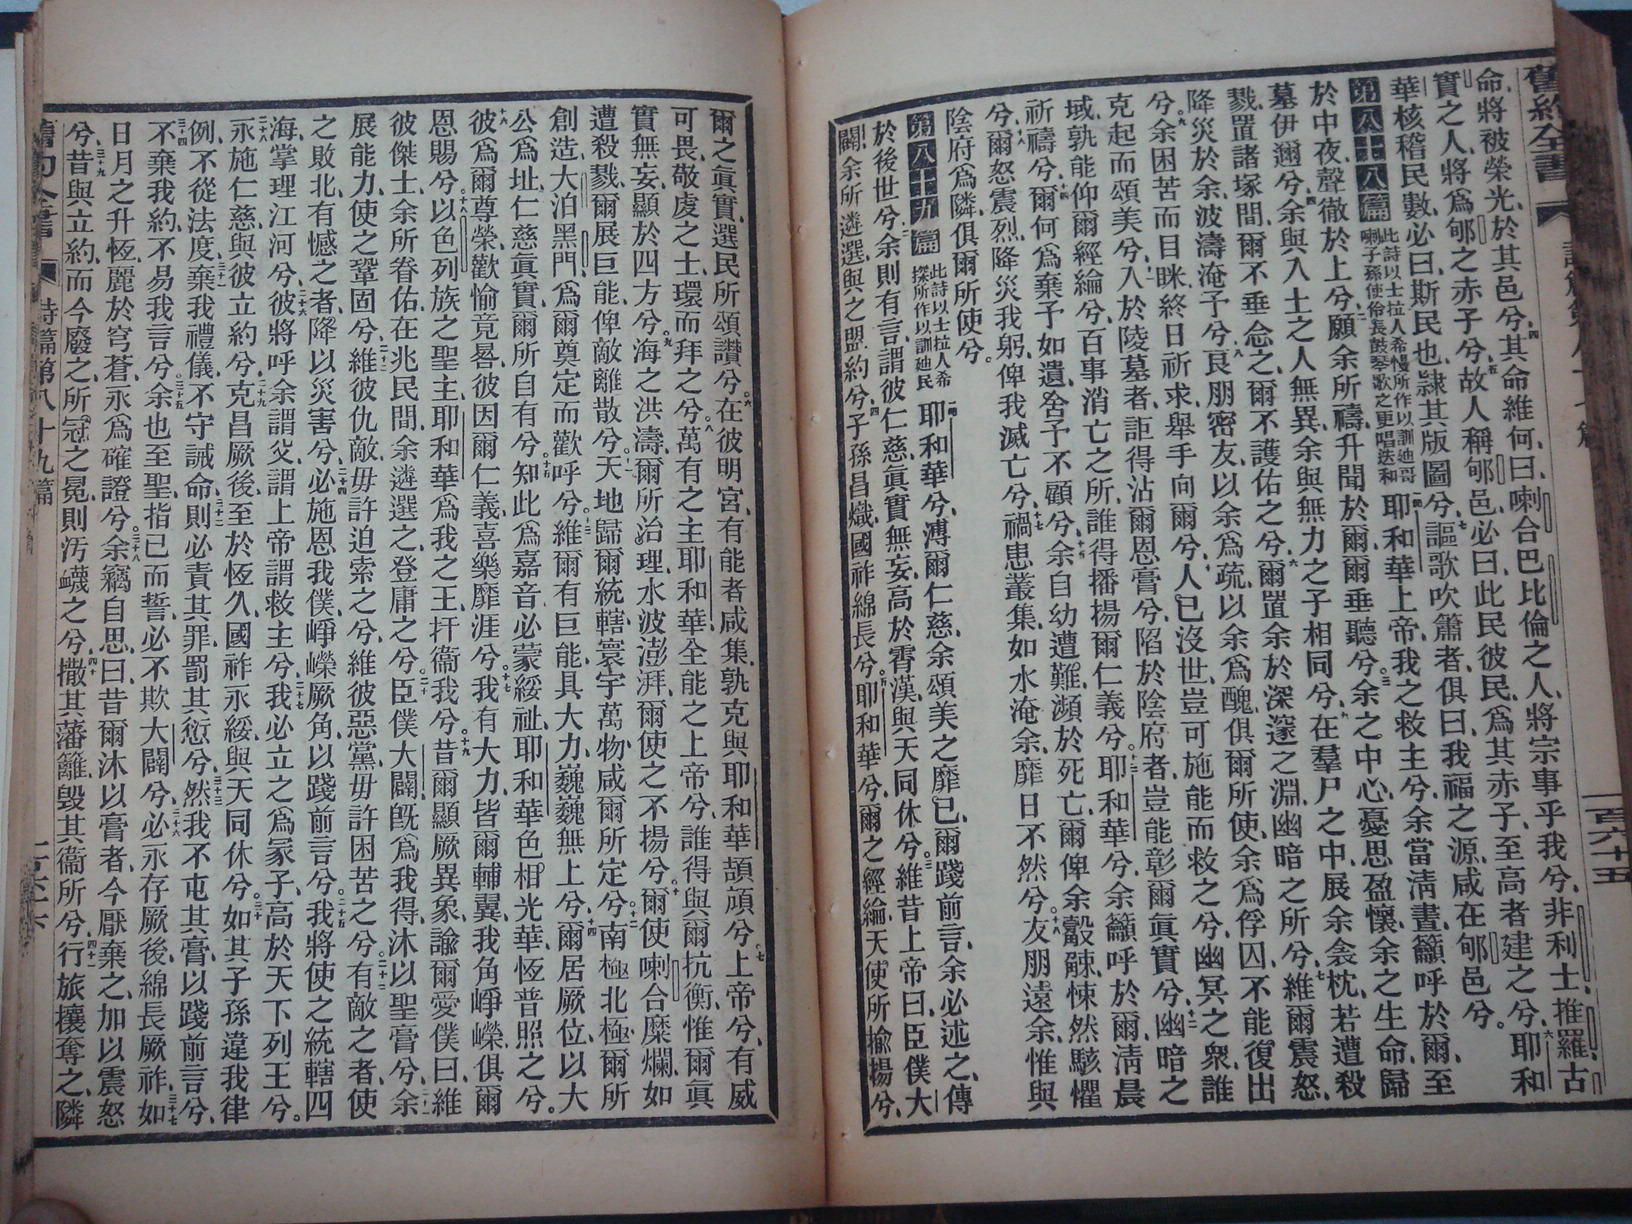 舊約全書
詩篇第八十七篇
一百六十五
命、將被榮光、於其邑兮、四其命維何、曰、喇合巴比倫之人、將宗事乎我兮、非利士推羅古
實之人、將爲郇之赤子兮、五故人稱郇邑、必曰此民彼民、爲其赤子、至高者建之兮、六耶和
華核稽民數、必曰斯民也、隸其版圖兮、七謳歌吹簫者、俱曰我福之源、咸在郇邑兮。
第八十八篇 此詩以士拉人希慢所作以訓迪哥喇子孫使伶長鼓琴歌之更唱迭和 一耶和華上帝、我之救主兮、余當淸晝、籲呼於爾、至
於中夜、聲徹於上兮、二願余所禱、升聞於爾、爾垂聽兮、三余之中心、憂思盈懷、余之生命、歸
墓伊邇兮、四余與入土之人無異、余與無力之子相同兮、五在羣尸之中、展余衾枕、若遭殺
戮、置諸塚間、爾不垂念之、爾不護佑之兮、六爾置余於深邃之淵、幽暗之所兮、七維爾震怒、
降災於余、波濤淹予兮、八良朋密友、以余爲疏、以余爲醜、俱爾所使、余爲俘囚、不能復出
兮、九余困苦而目眯、終日祈求、舉手向爾兮、十人已沒世、豈可施能而救之兮、幽冥之衆、誰
克起而頌美兮、十一入於陵墓者、詎得沾爾恩膏兮、陷於陰府者、豈能彰爾眞實兮、十二幽暗之
域、孰能仰爾經綸兮、百事消亡之所、誰得播揚爾仁義兮、十三耶和華兮、余籲呼於爾、淸晨
祈禱兮、十四爾何爲棄予如遺、舍予不顧兮、十五余自幼遭難、瀕於死亡、爾俾余觳觫、悚然駭懼
兮、十六爾怒震烈、降災我躬、俾我滅亡兮、十七禍患叢集、如水淹余、靡日不然兮、十八友朋遠余、惟與
陰府爲隣、俱爾所使兮。
第八十九篇 此詩以士拉人希探所作以訓迪民 一耶和華兮、溥爾仁慈、余頌美之靡已、爾踐前言、余必述之、傳
於後世兮、二余則有言、謂彼仁慈眞實無妄、高於霄漢、與天同休兮、三維昔上帝曰、臣僕大
闢、余所遴選、與之盟約兮、四子孫昌熾、國祚綿長兮、五耶和華兮、爾之經綸、天使所揄揚兮、
爾之眞實、選民所頌讚兮、六在彼明宮、有能者咸集、孰克與耶和華頡頏兮、七上帝兮、有威
可畏、敬虔之士、環而拜之兮、八萬有之主耶和華、全能之上帝兮、誰得與爾抗衡、惟爾眞
實無妄、顯於四方兮、九海之洪濤、爾所治理、水波澎湃、爾使之不揚兮、十爾使喇合糜爛、如
遭殺戮、爾展巨能、俾敵離散兮、十一天地歸爾統轄、寰宇萬物、咸爾所定兮、十二南極北極、爾所
創造、大泊黑門、爲爾奠定而歡呼兮、十三維爾有巨能、具大力、巍巍無上兮、十四爾居厥位、以大
公爲址、仁慈眞實、爾所自有兮、十五知此爲嘉音、必蒙綏祉、耶和華色相光華、恆普照之兮。
十六彼爲爾尊榮、歡愉竟晷、彼因爾仁義、喜樂靡涯兮、十七我有大力、皆爾輔翼、我角崢嶸、俱爾
恩賜兮、十八以色列族之聖主、耶和華爲我之王、扞衞我兮、十九昔爾顯厥異象、諭爾愛僕曰、維
彼傑士、余所眷佑、在兆民間、余遴選之、登庸之兮、二十臣僕大闢、旣爲我得、沐以聖膏兮、二十一余
展能力、使之鞏固兮、二十二維彼仇敵、毋許迫索之兮、維彼惡黨、毋許困苦之兮、二十三有敵之者、使
之敗北、有憾之者、降以災害兮、二十四必施恩我僕、崢嶸厥角、以踐前言兮、二十五我將使之統轄四
海、掌理江河兮、二十六彼將呼余謂父、謂上帝、謂救主兮、二十七我必立之爲冢子、高於天下列王兮。
二十八永施仁慈、與彼立約兮、二十九克昌厥後、至於恆久、國祚永綏、與天同休兮、三十如其子孫違我律
例、不從法度、三十一棄我禮儀、不守誡命、三十二則必責其罪、罰其愆兮、三十三然我不屯其膏、以踐前言兮、
三十四不棄我約、不易我言兮、三十五余也至聖、指己而誓、必不欺大闢兮、三十六必永存厥後、綿長厥祚、如三十七
日月之升恆、麗於穹蒼、永爲確證兮、三十八余竊自思曰、昔爾沐以膏者、今厭棄之、加以震怒
兮、三十九昔與立約、而今廢之、所冠之冕、則汚衊之兮、四十撒其藩籬、毀其衞所兮、四十一行旅攘奪之、隣
舊約全書
詩篇第八十九篇